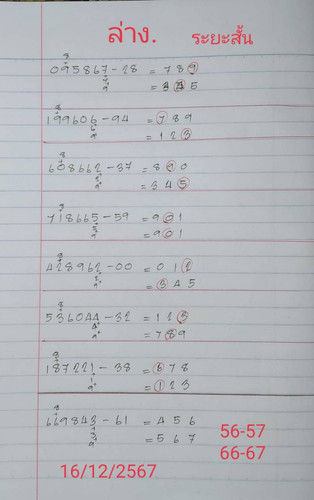 ล่าง. ระยะสั้น
095867-28 = 789
= 345
199606-94 = 789
= 123
608662-37 = 890
= 345
718665-59 = 901
= 901
428962-00 = 012
= 345
536044-32 = 123
= 789
187221-38 = 678
= 123
669843-61 = 456
= 567
56-57
66-67
16/12/2567